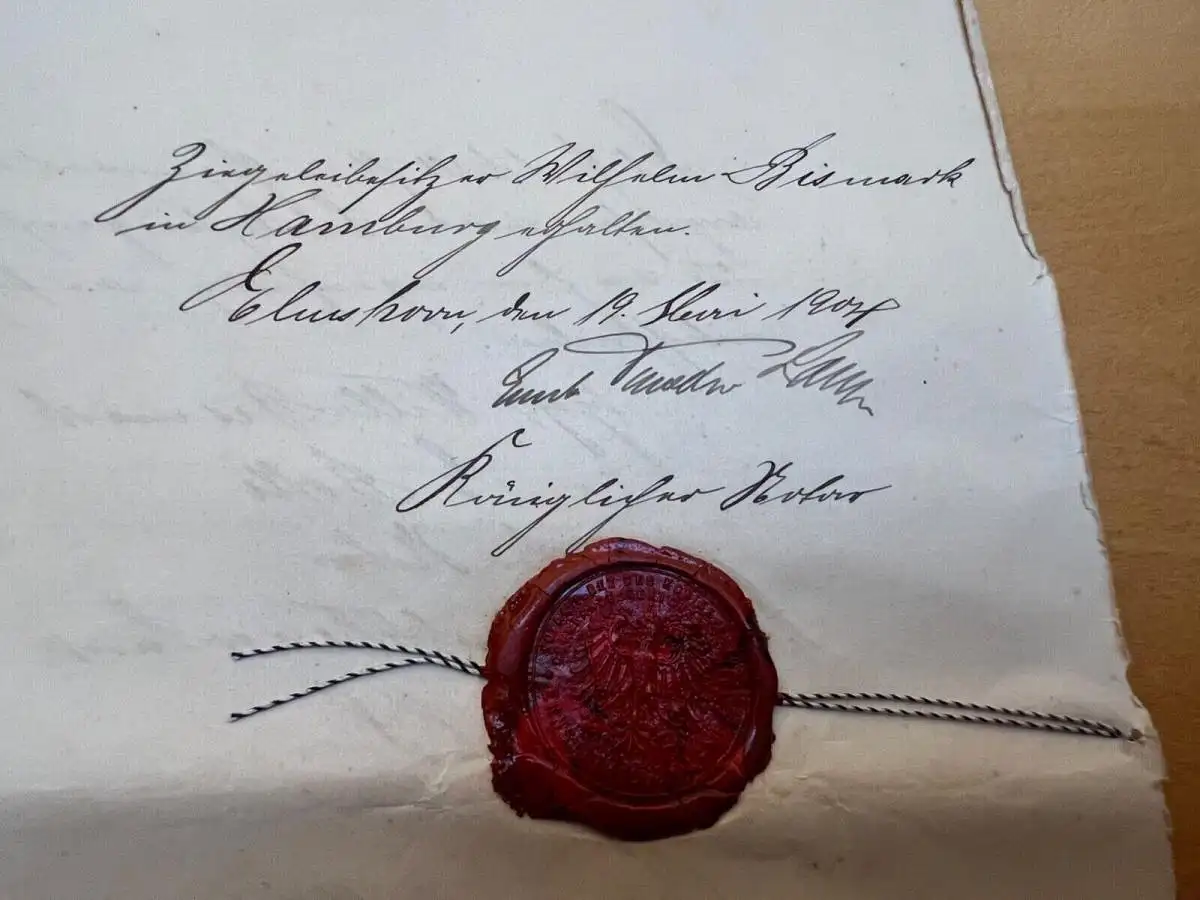 Ziegeleibesitzer Wilhelm Bismark
in Hamburg erhalten.
Elmshorn, den 19. Mai 1904
Königlicher Notar